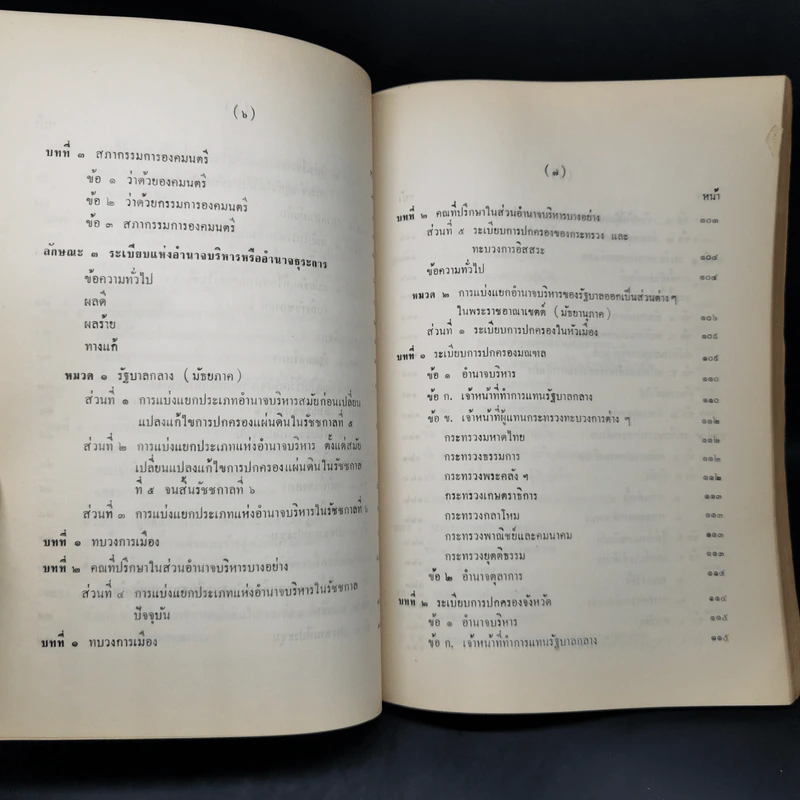 (๖)
บทที่ ๓ สภากรรมการองคมนตรี
ข้อ ๑ ว่าด้วยองคมนตรี
ข้อ ๒ ว่าด้วยกรรมการองคมนตรี
ข้อ ๓ สภากรรมการองคมนตรี
ลักษณะ ๓ ระเบียบแห่งอำนาจบริหารหรืออำนาจธุระการ
ข้อความทั่วไป
ผลดี
ผลร้าย
ทางแก้
หมวด ๑ รัฐบาลกลาง (มัธยภาค)
ส่วนที่ ๑ การแบ่งแยกประเภทอำนาจบริหารสมัยก่อนเปลี่ยน
แปลงแก้ไขการปกครองแผ่นดินในรัชชกาลที่ ๕
ส่วนที่ ๒ การแบ่งแยกประเภทแห่งอำนาจบริหาร ตั้งแต่สมัย
เปลี่ยนแปลงแก้ไขการปกครองแผ่นดินในรัชชกาล
ที่ ๕ จนสิ้นรัชชกาลที่ ๖
ส่วนที่ ๓ การแบ่งแยกประเภทแห่งอำนาจบริหารในรัชชกาลที่ ๖
บทที่ ๑ ทบวงการเมือง
บทที่ ๒ คณที่ปรึกษาในส่วนอำนาจบริหารบางอย่าง
ส่วนที่ ๔ การแบ่งแยกประเภทแห่งอำนาจบริหารในรัชชกาล
ปัจจุบัน
บทที่ ๑ ทบวงการเมือง
(๗)
หน้า
บทที่ ๒ คณที่ปรึกษาในส่วนอำนาจบริหารบางอย่าง ๑๐๓
ส่วนที่ ๕ ระเบียบการปกครองของกระทรวง และ
ทะบวงการอิสสระ ๑๐๔
ข้อความทั่วไป ๑๐๔
หมวด ๒ การแบ่งแยกอำนาจบริหารของรัฐบาลออกเป็นส่วนต่างๆ
ในพระราชอาณาเขตต์ (มัธยานุภาค) ๑๐๖
ส่วนที่ ๑ ระเบียบการปกครองในหัวเมือง ๑๐๕
บทที่ ๑ ระเบียบการปกครองมณฑล ๑๐๕
ข้อ ๑ อำนาจบริหาร ๑๑๐
ข้อ ก. เจ้าหน้าที่ทำการแทนรัฐบาลกลาง ๑๑๐
ข้อ ข. เจ้าหน้าที่ผู้แทนกระทรวงทะบวงการต่าง ๆ ๑๑๒
กระทรวงมหาดไทย ๑๑๒
กระทรวงธรรมการ ๑๑๒
กระทรวงพระคลัง ฯ ๑๑๒
กระทรวงเกษตราธิการ ๑๑๓
กระทรวงกลาโหม ๑๑๓
กระทรวงพาณิชย์และคมนาคม ๑๑๓
กระทรวงยุตติธรรม ๑๑๓
ข้อ ๒ อำนาจตุลาการ
บทที่ ๒ ระเบียบการปกครองจังหวัด ๑๑๔
ข้อ ๑ อำนาจบริหาร ๑๑๕
ข้อ ก. เจ้าหน้าที่ทำการแทนรัฐบาลกลาง ๑๑๕